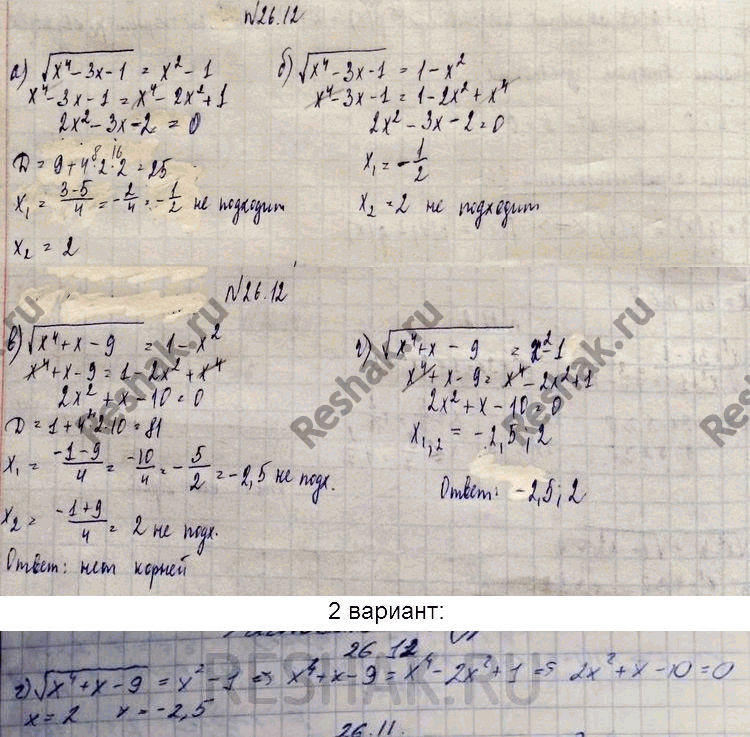 N26.12
а) √(x⁴-3x-1) = x²-1
x⁴-3x-1 = x⁴-2x²+1
2x²-3x-2 = 0
Д = 9+4·2·2 = 25
x₁ = (3-5)/4 = -2/4 = -1/2 не подходит
x₂ = 2
б) √(x⁴-3x-1) = 1-x²
x⁴-3x-1 = 1-2x²+x⁴
2x²-3x-2=0
x₁ = -1/2
x₂ = 2 не подходит
N26.12
в) √(x⁴+x-9) = 1-x²
x⁴+x-9 = 1-2x²+x⁴
2x²+x-10=0
Д = 1+4·2·10 = 81
x₁ = (-1-9)/4 = -10/4 = -5/2 = -2,5 не подх.
x₂ = (-1+9)/4 = 2 не подх.
Ответ: нет корней
г) √(x⁴+x-9) = x²-1
x⁴+x-9 = x⁴-2x²+1
2x²+x-10=0
x₁,₂ = -2,5; 2
Ответ: -2,5; 2
Reshak.ru
Reshak.ru
Reshak.ru
2 вариант:
26.12
г) √(x⁴+x-9) = x²-1 => x⁴+x-9 = x⁴-2x²+1 => 2x²+x-10=0
x=2 x=-2,5
RESHAK.RU
26.11.